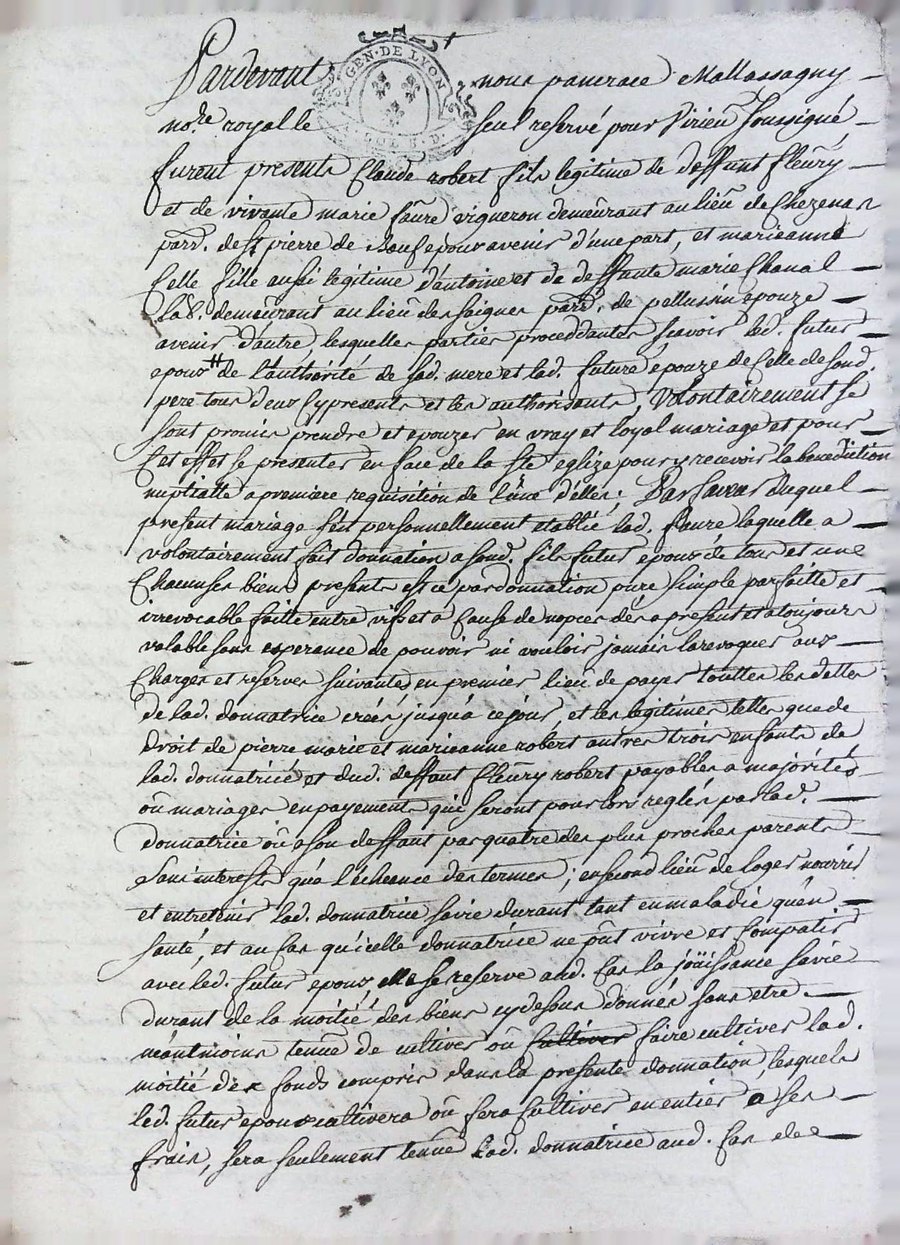 Pardevant nous pancrace Mallassagny
no.re royal le seul reservé pour Virieu soussigné
GEN·DE LYON
furent presents Claude robert fils legitime de deffunt fleury
et de vivante marie faure vigneron demeurant au lieu de Chezenas
parr. de St pierre de Boeuf epoux avenir d'une part, et marieanne
Celle fille aussi legitime d'antoine et de deffunte marie Chaval
lad. demeurant au lieu des saignes parr. de pellussin epouze
avenir d'autre, lesquelles parties proceddantes scavoir led. futur
epoux de l'authorité de sad. mere et lad. future epouze de Celle de sond.
pere tous deux cy presents et les authorisants, Volontairement se
sont promis prendre et epouzer en vray et loyal mariage et pour
Cet effet se presenter en face de la Ste eglize pour y recevoir la benediction
nuptialle a premiere requisition de l'une d'elles. En faveur duquel
present mariage s'est personnellement etablie lad. faure laquelle a
volontairement fait donnation a sond. fils futur epoux de tous et uns
Chacuns ses biens presents et ce par donnation pure simple parfaitte et
irrevocable faitte entre vifs et a Cause de nopces dès apresent et a toujours
valable sans esperance de pouvoir ni vouloir jamais la revoquer aux
Charges et reserves suivantes, en premier lieu de payer touttes les dettes
de lad. donnatrice créés jusqu'a ce jour, et les legitimes telles que de
Droit de pierre marie et marieanne robert autres trois enfants de
lad. donnatrice et dud. deffunt fleury robert payables a majorités
ou mariages en payements qui seront pour lors reglés par lad.
donnatrice ou a son deffaut par quatre des plus proches parents
Sans interests qu'a l'echeance des termes; en second lieu de loger nourrir
et entretenir lad. donnatrice sa vie durant tant en maladie qu'en
santé, et au Cas qu'icelle donnatrice ne pût vivre et Compatir
avec led. futur epoux, elle se reserve aud. Cas la joüissance sa vie
durant de la moitié des biens cy dessus donnés sans etre
néantmoins tenue de cultiver ou cultiver faire cultiver lad.
moitié des fonds compris dans la presente donnation, lesquels
led. futur epoux cultivera ou fera Cultiver en entier a ses
frais, sera seulement tenue lad. donnatrice aud. Cas de